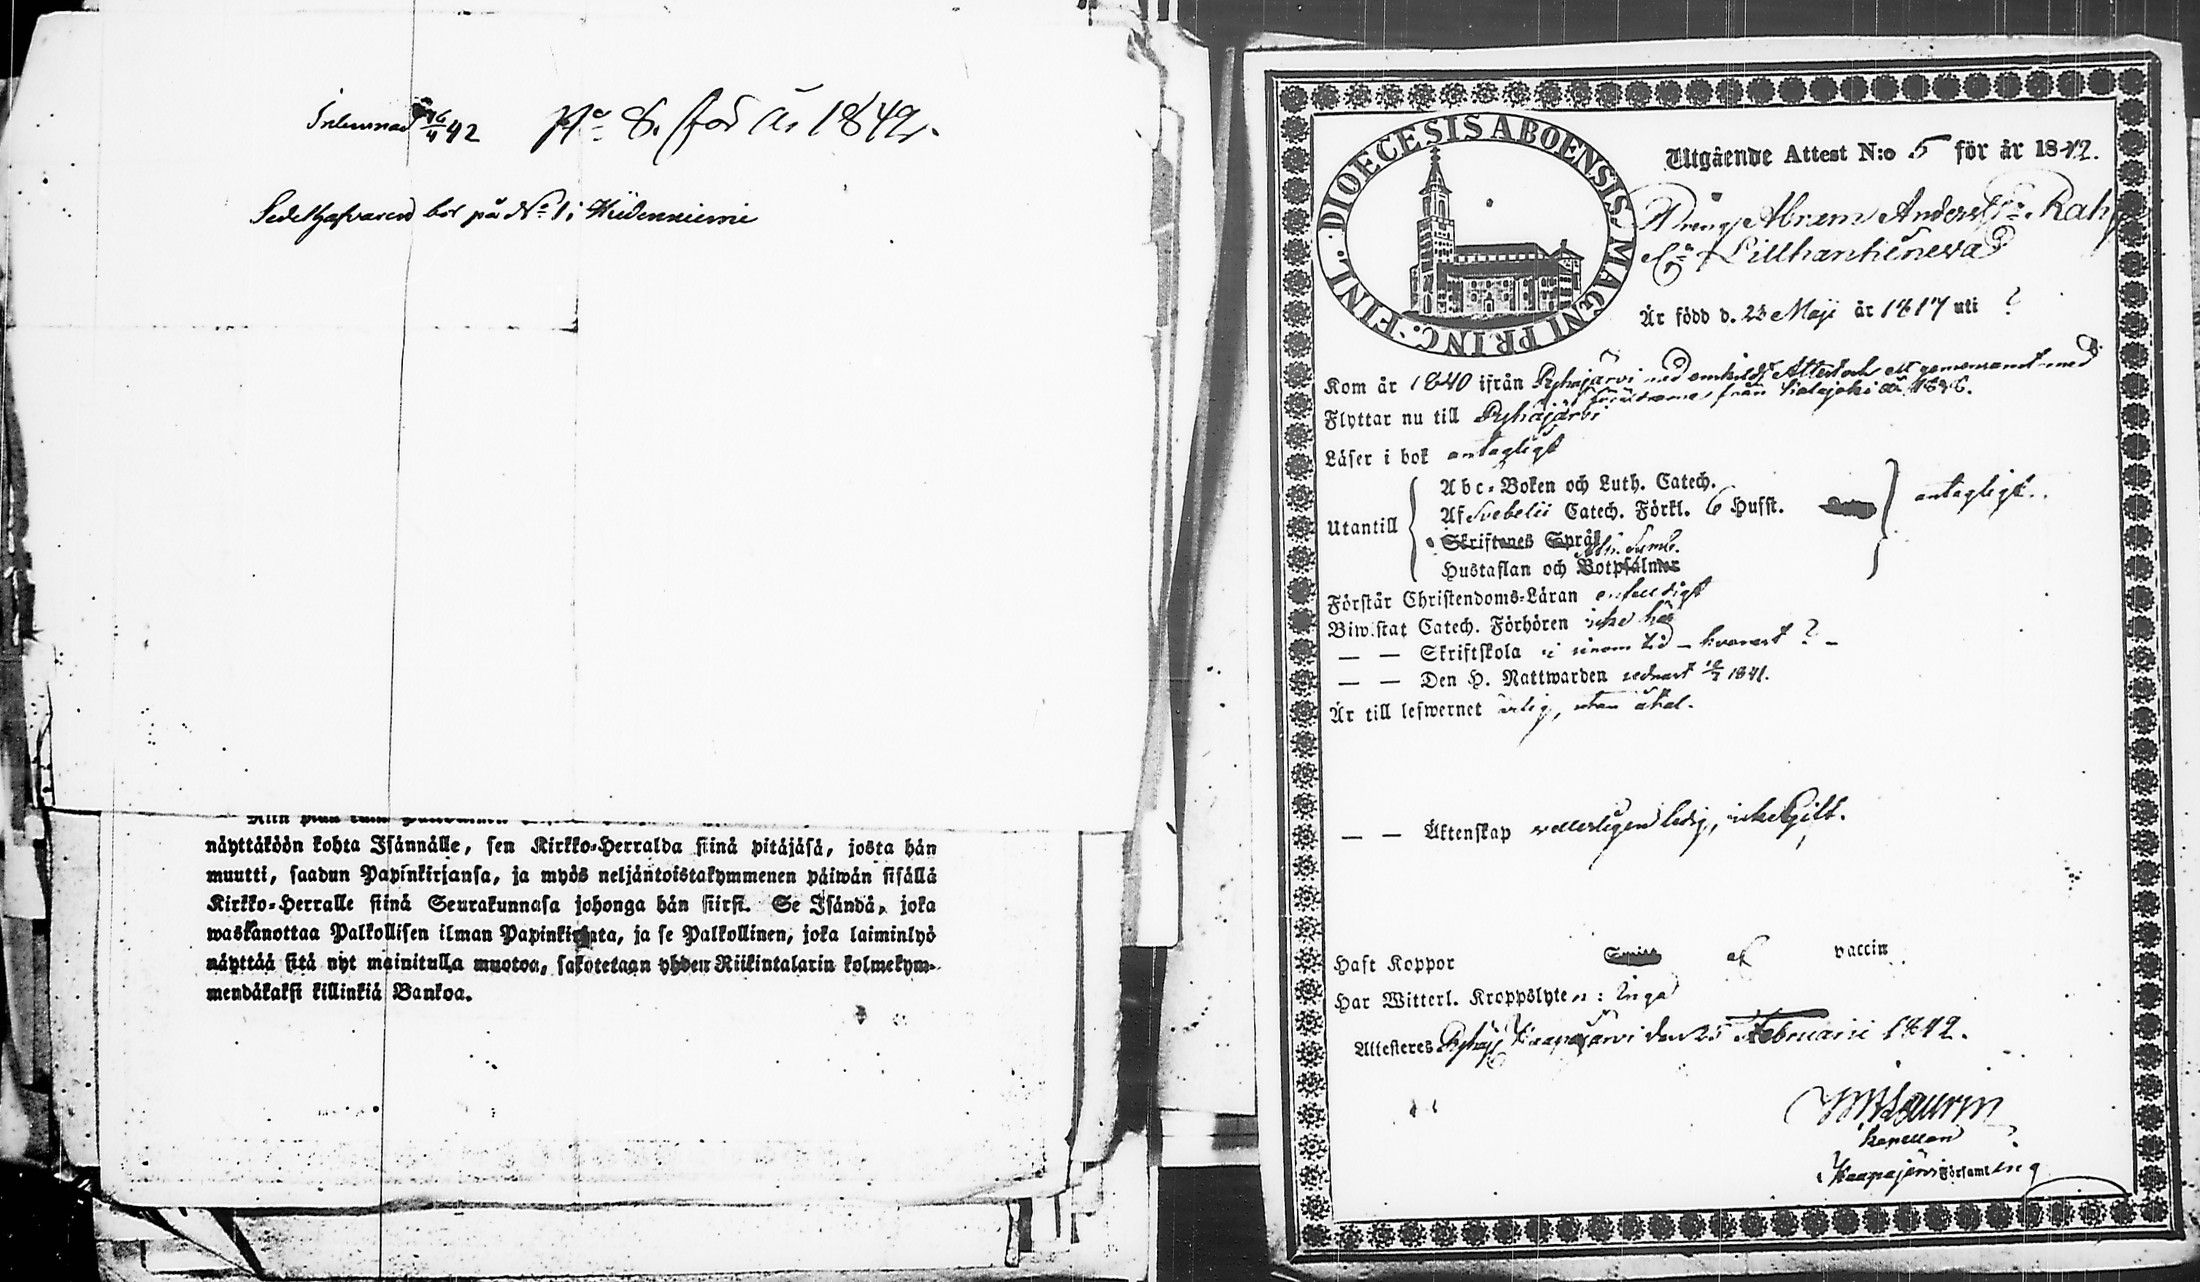 Inlemnad 26/4 42 No 8. för år 1842.
Sedelhafvaren bor på No 1 i Hiidenniemi
näyttäköön kohta Isännälle, sen Kirkko-Herralda siinä pitäjäsä, josta hän
muutti, saadun Papinkirjansa, ja myös neljäntoistakymmenen päiwän sisällä
Kirkko-Herralle siinä Seurakunnasa johonga hän siirsi. Se Isändä, joka
wastanottaa Palkollisen ilman Papinkirjata, ja se Palkollinen, joka laiminlyö
näyttää sitä nyt mainitulla muotoa, sakotetaan yhden Riikintalarin kolmekym-
mendäkaksi killinkiä Bankoa.
DIOECESIS ABOENSIS MAGNI PRINC. FINL.
Utgående Attest N:o 5 för år 1842.
Dreng Abram Anders
Är född d. 23 Maji år 1817 uti ?
Kom år 1840 ifrån Pyhäjärvi med enskildt Attest och ett gemensamt med
från år 1836.
Flyttar nu till Pyhäjärvi
Läser i bok antagligt
Utantill
Abc-Boken och Luth. Catech.
Af Svebelii Catech. Förkl. 6 Hufst. antagligt.
Skriftenes Språk
Hustaflan och Botpsalmer
Förstår Christendoms-Läran enfaldigt
Biwistat Catech. Förhören icke här
— — Skriftskola i sinom tid – hvarest ? –
— — Den H. Nattwarden sednast 1841.
Är till lefwernet ärlig, utan åtal.
— — Äktenskap veterligen ledig, icke gift.
Haft Koppor af vaccin
Har Witterl. Kroppslyten: Inga
Attesteres Pyhäj. Haapajärvi den 25 Februarii 1842.
Kapellan
Haapajärvi Församl